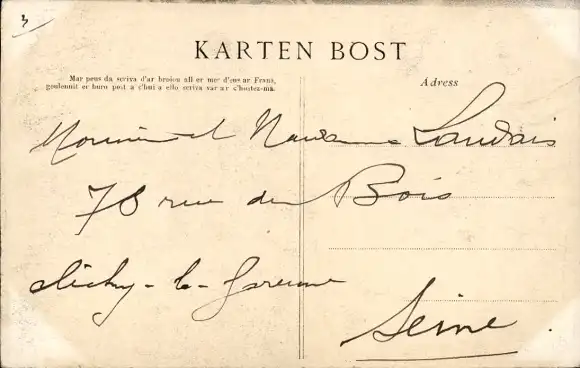 3
KARTEN BOST
Mar peus da scriva d'ar broiou all er mez d'eus ar Frans,
goulennit er buro post a c'hui a ello scriva var ar c'hostez-ma.
Adress
Monsieur et Madame Landais
78 rue du Bois
Clichy-la-Garenne
Seine